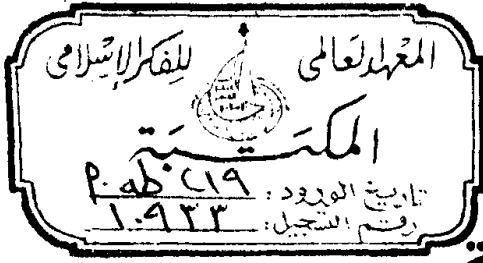 المعهد العالمي للفكر الإسلامي
المكتبة
تاريخ الورود:
رقم التسجيل: ١٠٩٣٣